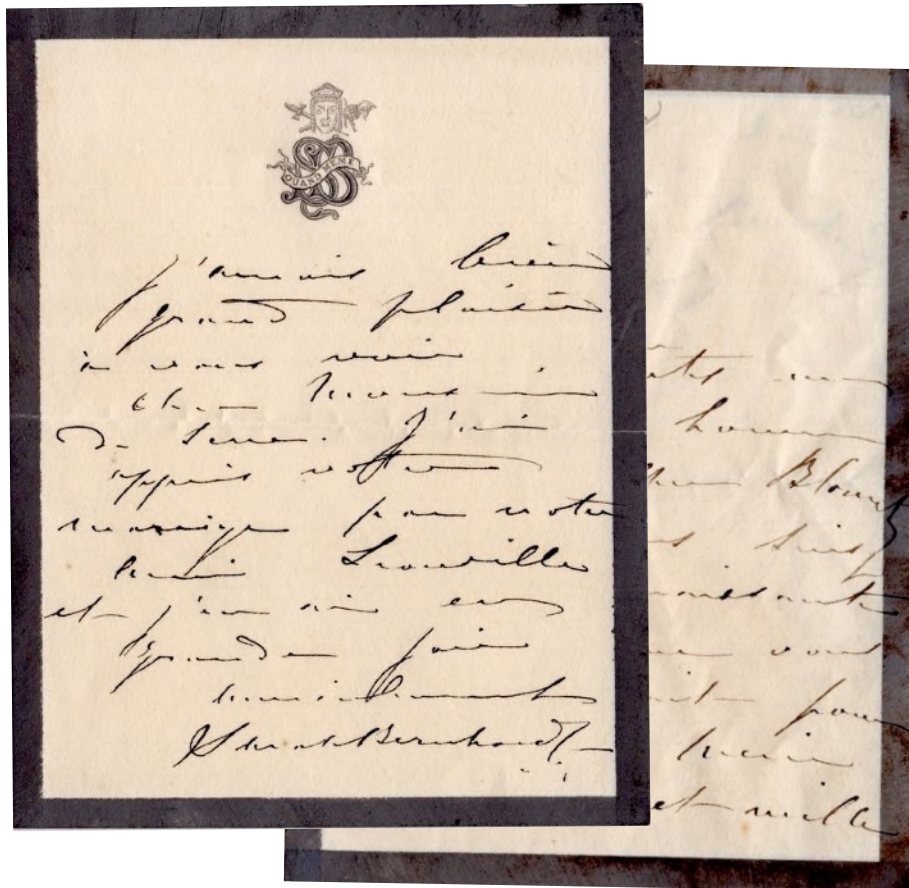 QUAND MEME
j'aurais bien
grand plaisir
à vous voir
cher Monsieur
de J'ai
appris votre
mariage par votre
ami Liouville
et j'en ai eu
grande joie
amicalement
Sarah Bernhardt
un
Blowitz
suis
vous
pour
et mille